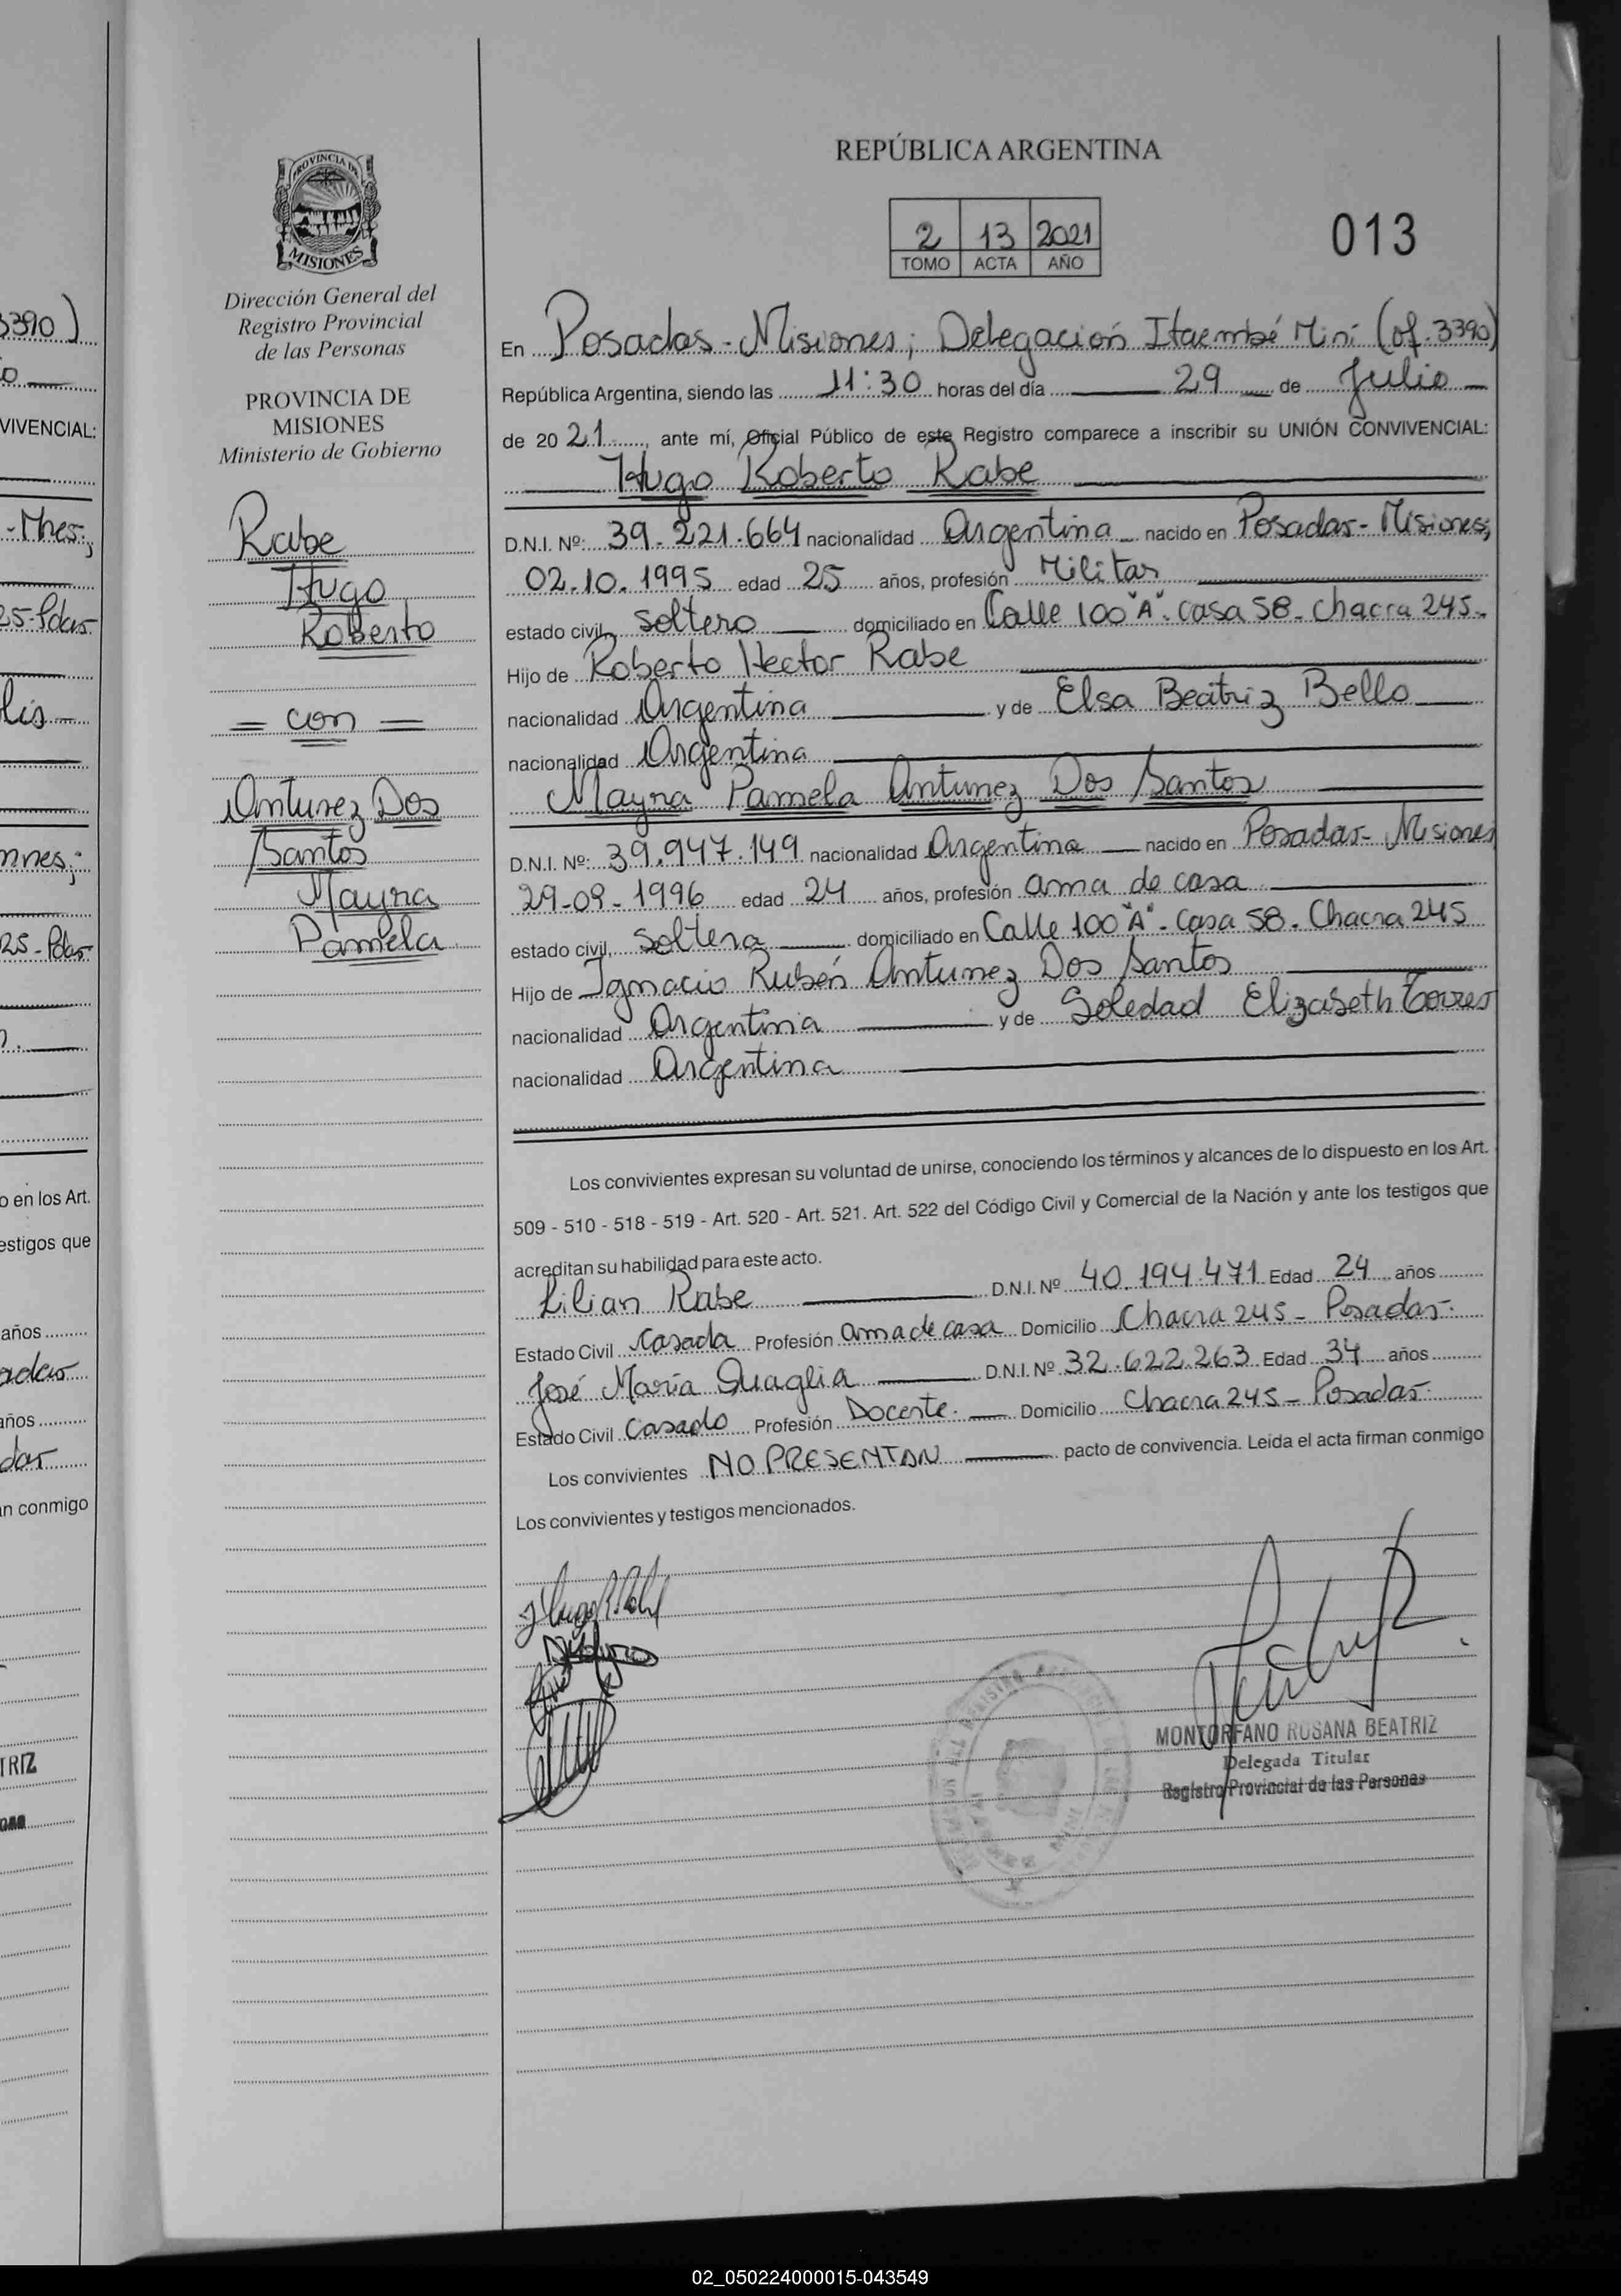 REPÚBLICA ARGENTINA
2 13 2021
TOMO ACTA AÑO
013
PROVINCIA DE
MISIONES
Dirección General del
Registro Provincial
de las Personas
PROVINCIA DE
MISIONES
Ministerio de Gobierno
Rabe
Hugo
Roberto
= con =
Antunez Dos
Santos
Mayra
Pamela
En Posadas - Misiones; Delegación Itaembé Miní (of. 3390)
República Argentina, siendo las 11:30 horas del día 29 de Julio
de 2021, ante mí, Oficial Público de este Registro comparece a inscribir su UNIÓN CONVIVENCIAL:
Hugo Roberto Rabe
D.N.I. Nº: 39.221.664 nacionalidad Argentina nacido en Posadas - Misiones;
02.10.1995 edad 25 años, profesión Militar
estado civil, soltero domiciliado en Calle 100 "A". casa 58 - Chacra 245.
Hijo de Roberto Hector Rabe
nacionalidad Argentina y de Elsa Beatriz Bello
nacionalidad Argentina
Mayra Pamela Antunez Dos Santos
D.N.I. Nº: 39.947.149 nacionalidad Argentina nacido en Posadas - Misiones
29-09-1996 edad 24 años, profesión ama de casa
estado civil, Soltera domiciliado en Calle 100 "A" - Casa 58 - Chacra 245
Hijo de Ignacio Rubén Antunez Dos Santos
nacionalidad Argentina y de Soledad Elizabeth Torres
nacionalidad Argentina
Los convivientes expresan su voluntad de unirse, conociendo los términos y alcances de lo dispuesto en los Art.
509 - 510 - 518 - 519 - Art. 520 - Art. 521. Art. 522 del Código Civil y Comercial de la Nación y ante los testigos que
acreditan su habilidad para este acto.
Lilian Rabe D.N.I. Nº 40.194.471 Edad 24 años
Estado Civil Casada Profesión ama de casa Domicilio Chacra 245 - Posadas.
José María Quaglia D.N.I. Nº 32.622.263 Edad 34 años
Estado Civil Casado Profesión Docente. Domicilio Chacra 245 - Posadas.
Los convivientes NO PRESENTAN pacto de convivencia. Leída el acta firman conmigo
Los convivientes y testigos mencionados.
MONTORFANO ROSANA BEATRIZ
Delegada Titular
Registro Provincial de las Personas
3390)
VIVENCIAL:
o en los Art.
estigos que
años
años
an conmigo
02_050224000015-043549